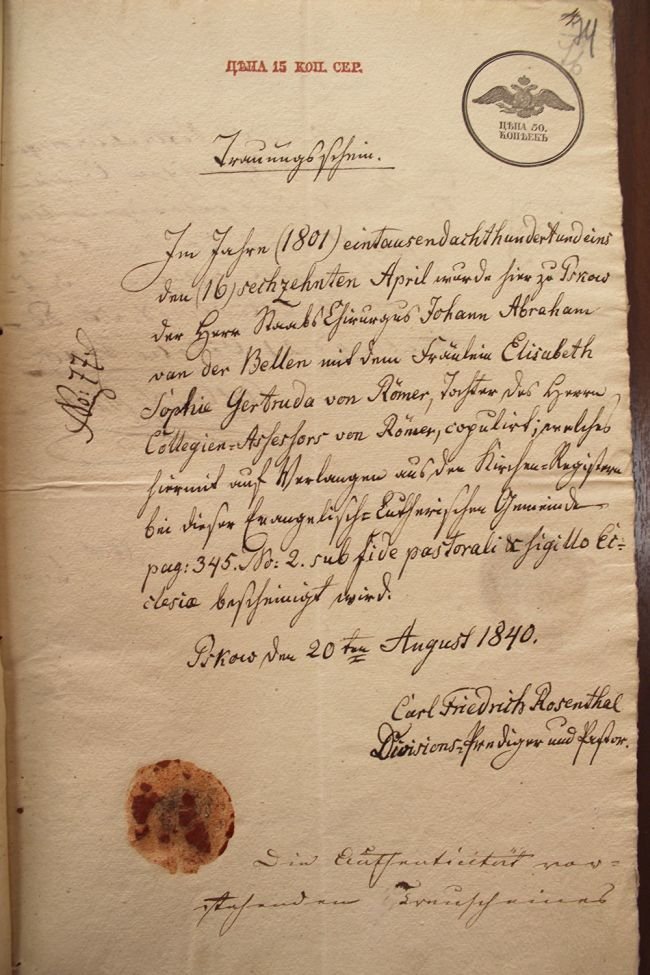 74
ЦѢНА 15 КОП. СЕР.
ЦѢНА 50.
КОПѢЕКЪ
Trauungsschein.
Im Jahre (1801) eintausendachthundertundeins
den (16) sechzehnten April wurde hier zu Pskow
der Herr StaabsChirurgus Johann Abraham
van der Bellen mit dem Fräulein Elisabeth
Sophie Gertruda von Römer, Tochter des Herrn
Collegien-Assessors von Römer, copulirt; welches
hiermit auf Verlangen aus den Kirchen-Registern
bei dieser Evangelisch-Lutherischen Gemeinde
pag: 345. No: 2. sub fide pastorali & sigillo Ec-
clesiæ bescheinigt wird.
No: 77.
Pskow den 20ten August 1840.
Carl Friedrich Rosenthal
Divisions-Prediger und Pastor.
Die Authenticität vor-
stehenden Trauscheines